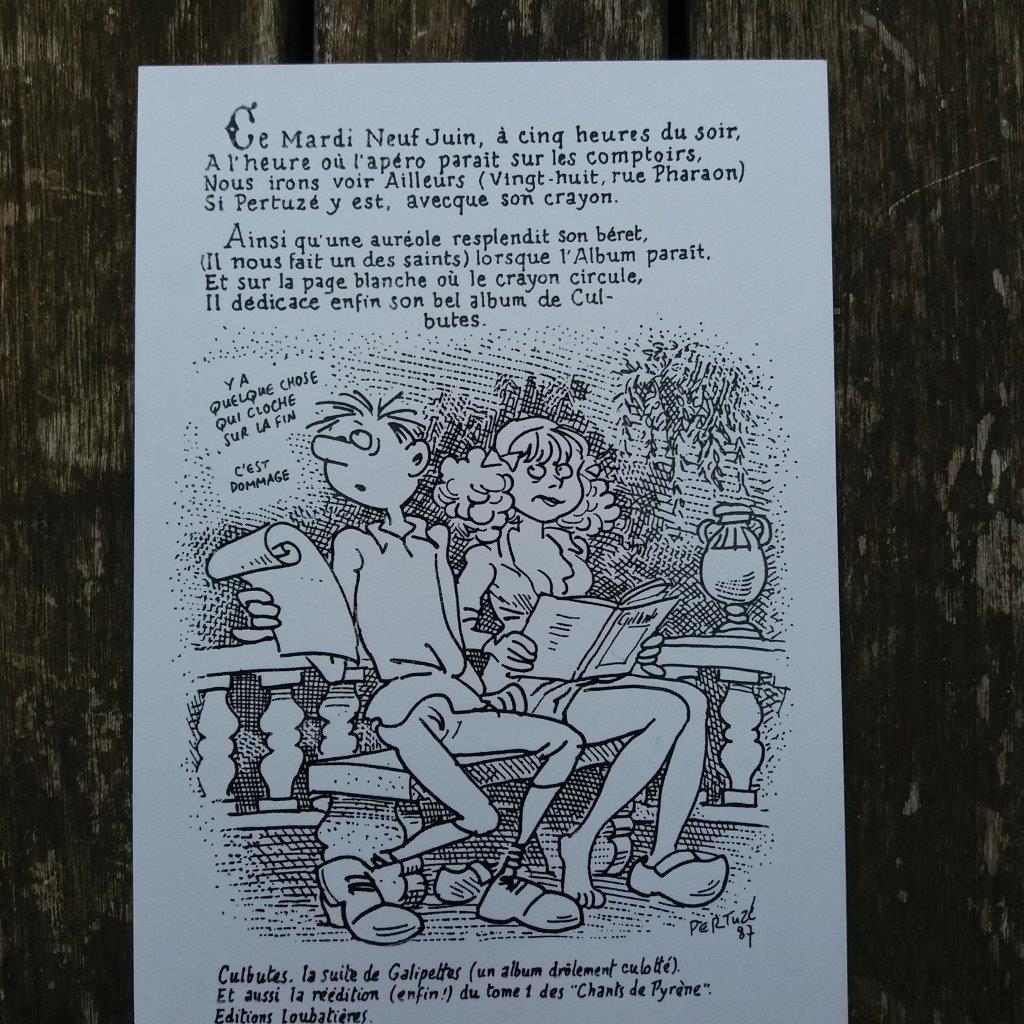 Ce Mardi Neuf Juin, à cinq heures du soir,
A l'heure où l'apéro parait sur les comptoirs,
Nous irons voir Ailleurs (Vingt-huit, rue Pharaon)
Si Pertuzé y est, avecque son crayon.
Ainsi qu'une auréole resplendit son béret,
(Il nous fait un des saints) lorsque l'Album paraît,
Et sur la page blanche où le crayon circule,
Il dédicace enfin son bel album de Cul-
butes.
Y A
QUELQUE CHOSE
QUI CLOCHE
SUR LA FIN
C'EST
DOMMAGE
PERTUZÉ
87
Culbutes. la suite de Galipettes (un album drôlement culotté).
Et aussi la réédition (enfin!) du tome 1 des "Chants de Pyrène".
Editions Loubatières.